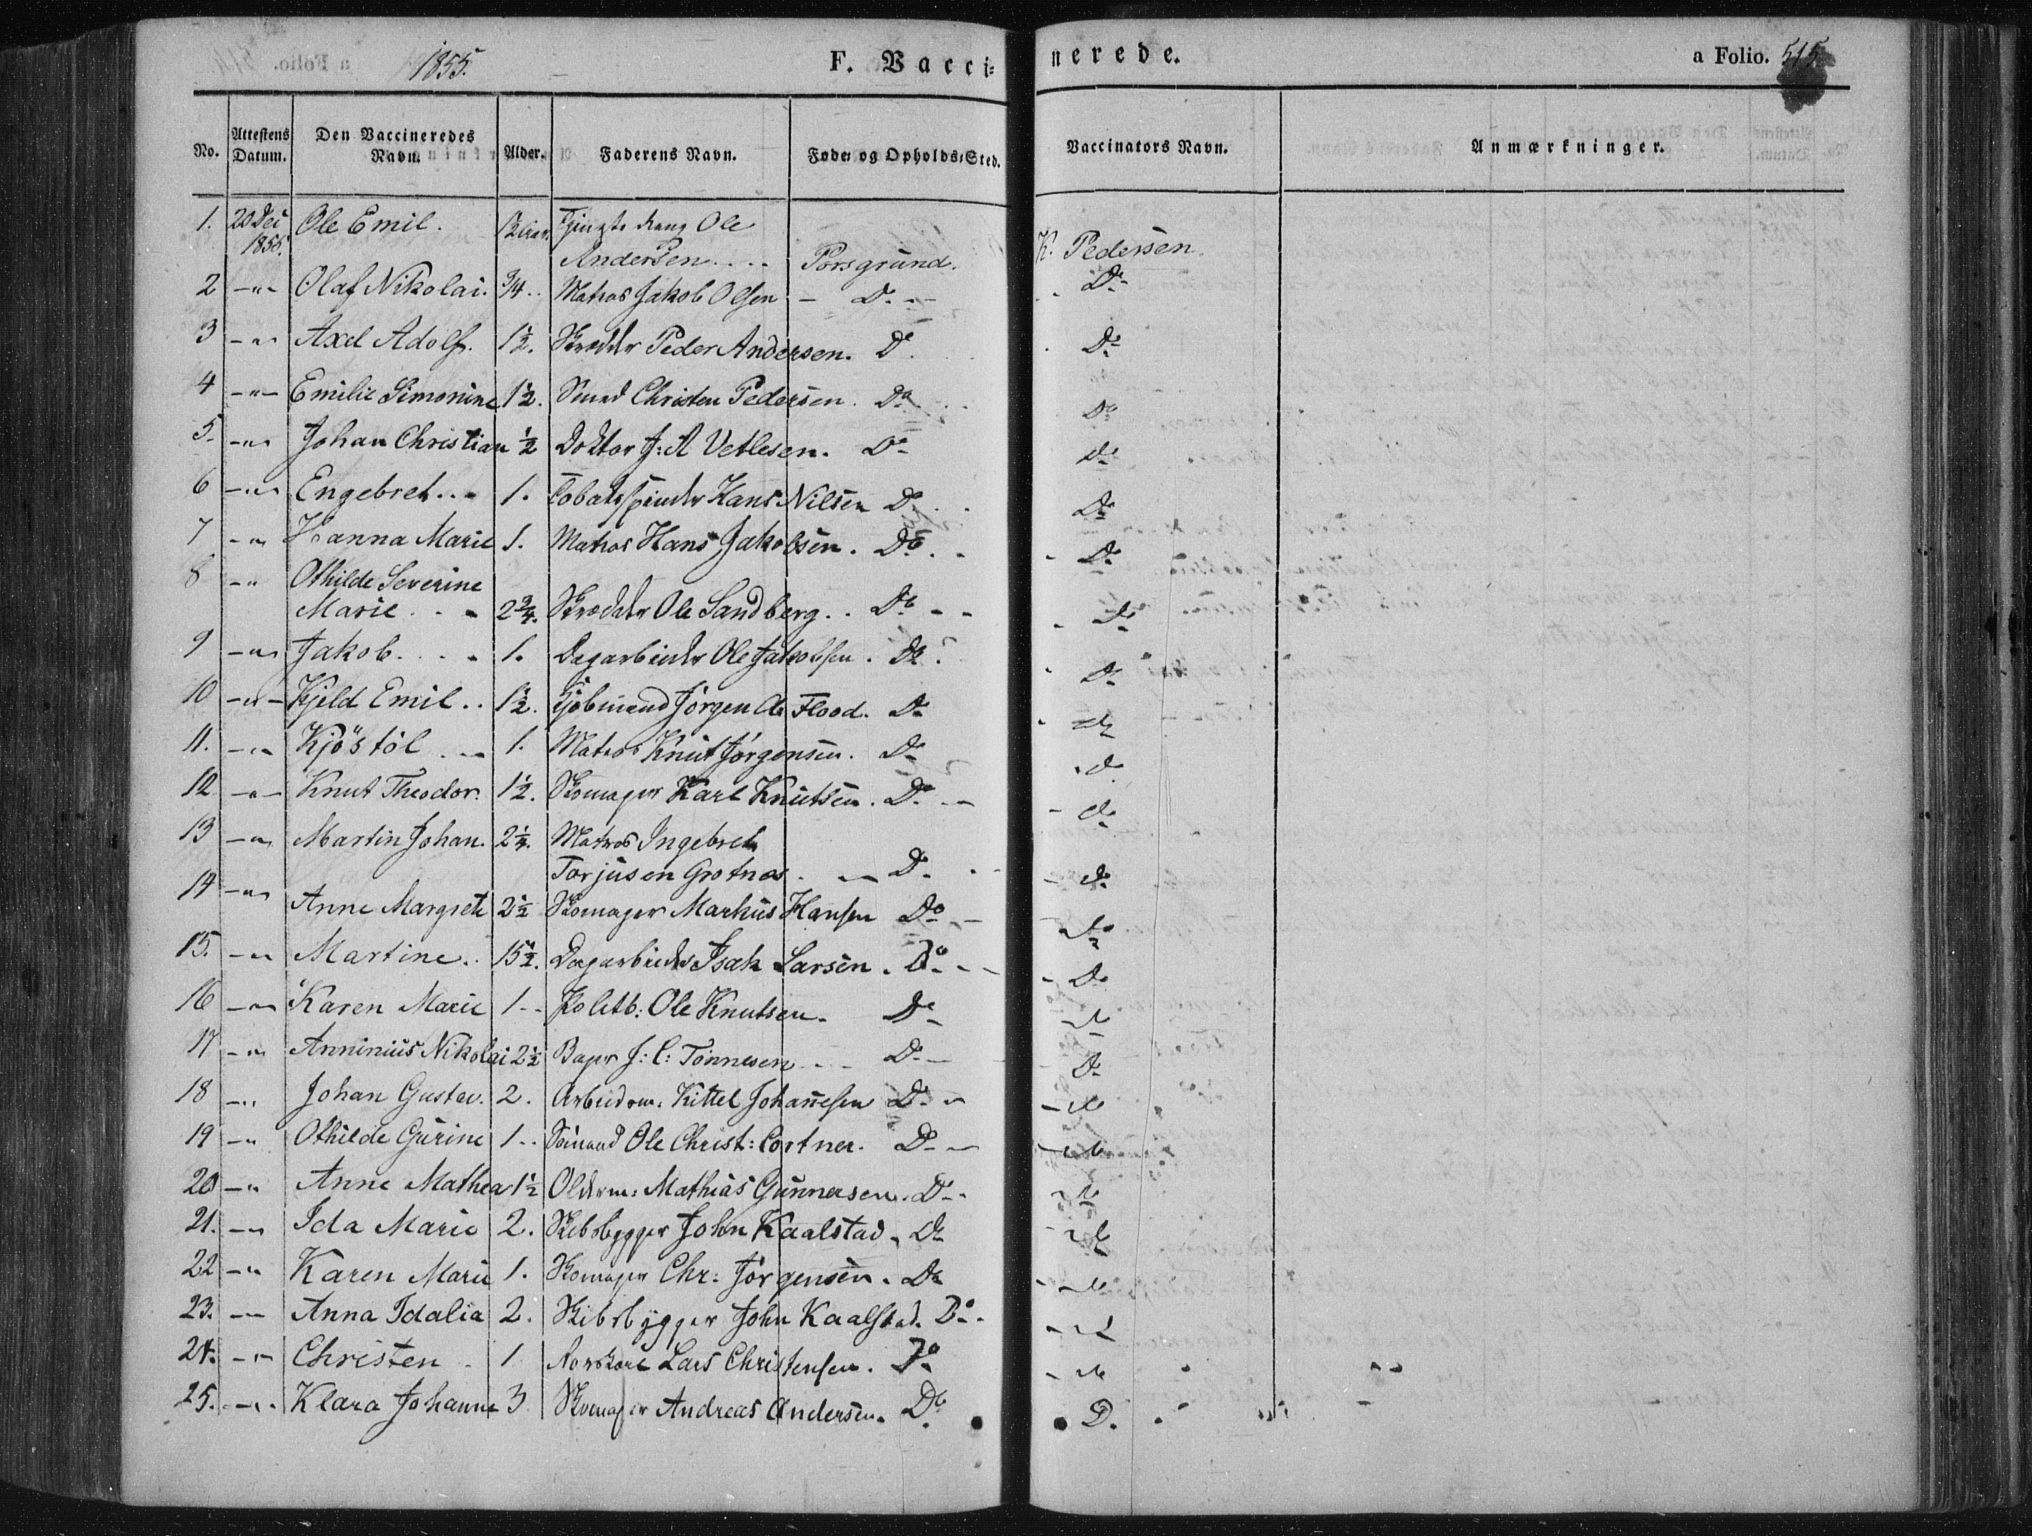 1855.
F. Vacci=
nerede.
a Folio. 515
No. Attestens Datum. Den Vaccineredes Navn. Alder. Faderens Navn. Føde= og Opholds=Sted. Vaccinators Navn. Anmærkninger.
1. 20 Dec Ole Emil. Ole
1855. Andersen.... Porsgrund. K. Pedersen.
2 -"- Olaf Nikolai. 3/4.. Matros Jakob Olsen - Do -- Do
3 -"- Axel Adolf. 1½. Skrædder Peder Andersen. Do Do
4 -"- Emilie Simonine 1½. Smed Christen Pedersen. Do Do
5. -"- Johan Christian ½ Doktor J: A Vetlesen. Do Do
6 -"- Engebret... 1. Tobaksspinder Hans Nilsen Do Do
7 -"- Hanna Marie 1. Matros Hans Jakobsen. Do.. Do
8 -"- Othilde Severine
Marie... 2 3/4. Skrædder Ole Sandberg.. Do -- Do
9 -"- Jakob.... 1. Dagarbeider Ole Jakobsen. Do Do
10 -"- Kjeld Emil.. 1½. Kjøbmand Jörgen A Flood. Do Do
11. -"- Kjöstöl 1. Matros Knut Jörgensen. Do Do
12 -"- Knut Theodor. 1½. Skomager Karl Knutsen. Do -- Do
13 -"- Martin Johan. 2¼. Matros Ingebret
Torjusen Grotnæs. Do Do
14 -"- Anne Margrete 2½ Skomager Markus Hansen Do Do
15. -"- Martine.. 15½. Dagarbeider Isak Larsen. Do -- Do
16 -"- Karen Marie 1-- Politb: Ole Knutsen. Do Do
17 -"- Anninius Nikolai 2½ Bager J: C: Tönnesen Do Do
18 -"- Johan Gustav. 2. Arbeidsm. Kittel Johannesen Do Do
19 -"- Othilde Gurine 1-- Sömand Ole Christ: Cortner. Do Do
20 -"- Anne Mathea 1½ Olderm: Mathias Gunnersen. Do Do
21. -"- Ida Marie 2. Skibsbygger John Kaalstad. Do Do
22 -"- Karen Marie 1. Skomager Chr: Jörgensen. Do Do
23. -"- Anna Idalia 2. Skibsbygger John Kaalstad. Do Do
24. -"- Christen 1 Lars Christensen. Do Do
25. -"- Klara Johanne 3 Skomager Andreas Andersen. Do D.